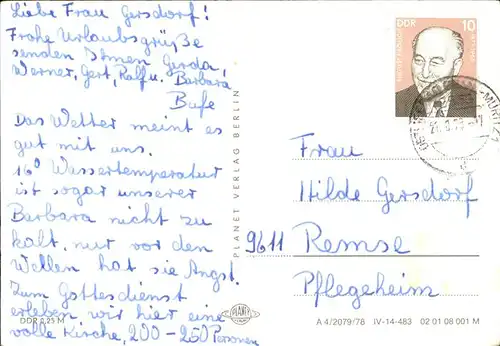 Liebe Frau Gersdorf!
Frohe Urlaubsgrüße
senden Ihnen Gerda,
Werner, Gert, Ralf u. Barbara
Bufe
Das Wetter meint es
gut mit uns.
16° Wassertemperatur
ist sogar unserer
Barbara nicht zu
kalt, nur vor den
Wellen hat sie Angst.
Zum Gottesdienst
erleben wir hier eine
volle Kirche, 200-250 Personen
DDR 0,25 M
PLANET VERLAG BERLIN
PLANET
DDR 10
Frau
Hilde Gersdorf
9611 Remse
Pflegeheim
A 4/2079/78 IV-14-483 02 01 08 001 M